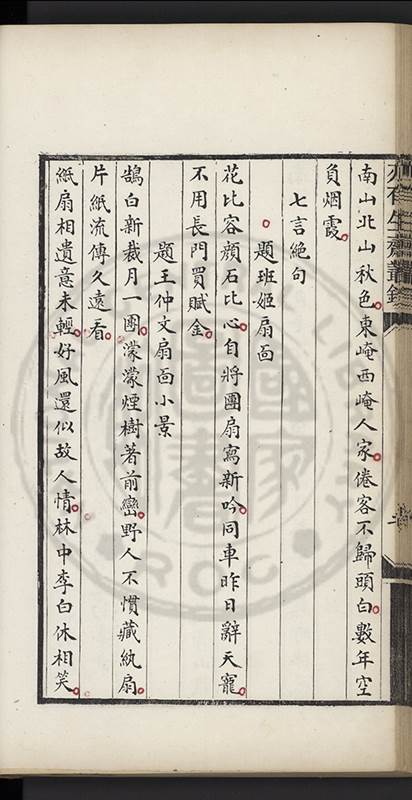 南山北山秋色東崦西崦人家倦客不歸頭白數年空
負烟霞
七言絶句
題班姬扇面
花比容顔石比心自將團扇寫新吟同車昨日辭天寵
不用長門買賦金
題王仲文扇面小景
鵠白新裁月一團濛濛煙樹著前巒野人不慣藏紈扇
片紙流傳久遠看
紙扇相遺意未輕好風還似故人情林中李白休相笑